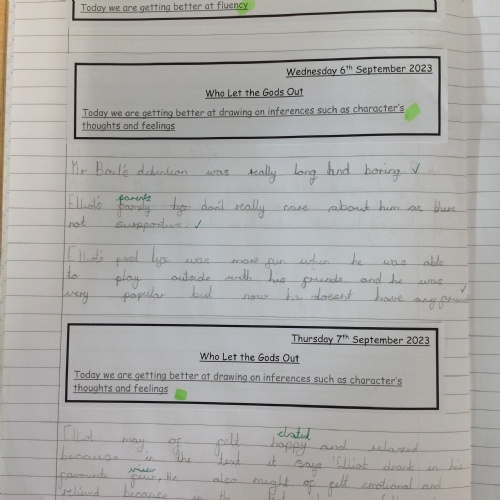 Today we are getting better at fluency
Wednesday 6th September 2023
Who Let the Gods Out
Today we are getting better at drawing on inferences such as character's
thoughts and feelings
detention was really long and boring.
parents
Elliot's family don't really care about him as there
not supportive.
Elliot's past life was more fun when he was able
to play outside with his friends and he was
very popular but now he doesnt have any
Thursday 7th September 2023
Who Let the Gods Out
Today we are getting better at drawing on inferences such as character's
thoughts and feelings
elated
Elliot may of felt happy and relaxed
because in the text it says "Elliot drank in his
view
favourite he also might of felt emotional and
relieved because in the